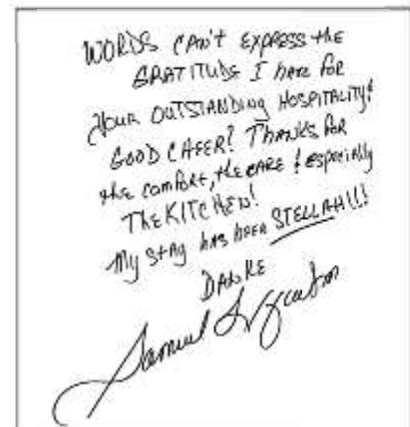 WORDS CAN'T EXPRESS the
GRATITUDE I have FOR
YOUR OUTSTANDING HOSPITALITY &
GOOD CHEER! THANKS FOR
the comfort, the CARE & especially
THE KITCHEN!
My stay has been STELLAH!!!
DANKE
Samuel L